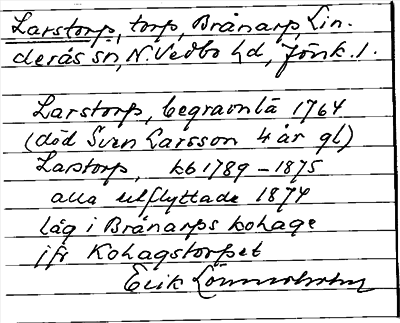 Larstorp, torp, Brånarp, Lin-
derås sn, N. Vedbo hd, Jönk. l.
Larstorp, begravnl̄a 1764
(död Sven Larsson 4 år gl)
Larstorp, kb 1789 - 1875
alla utflyttade 1874
låg i Brånarps kohage
jfr Kohagstorpet
Erik Lönnerholm